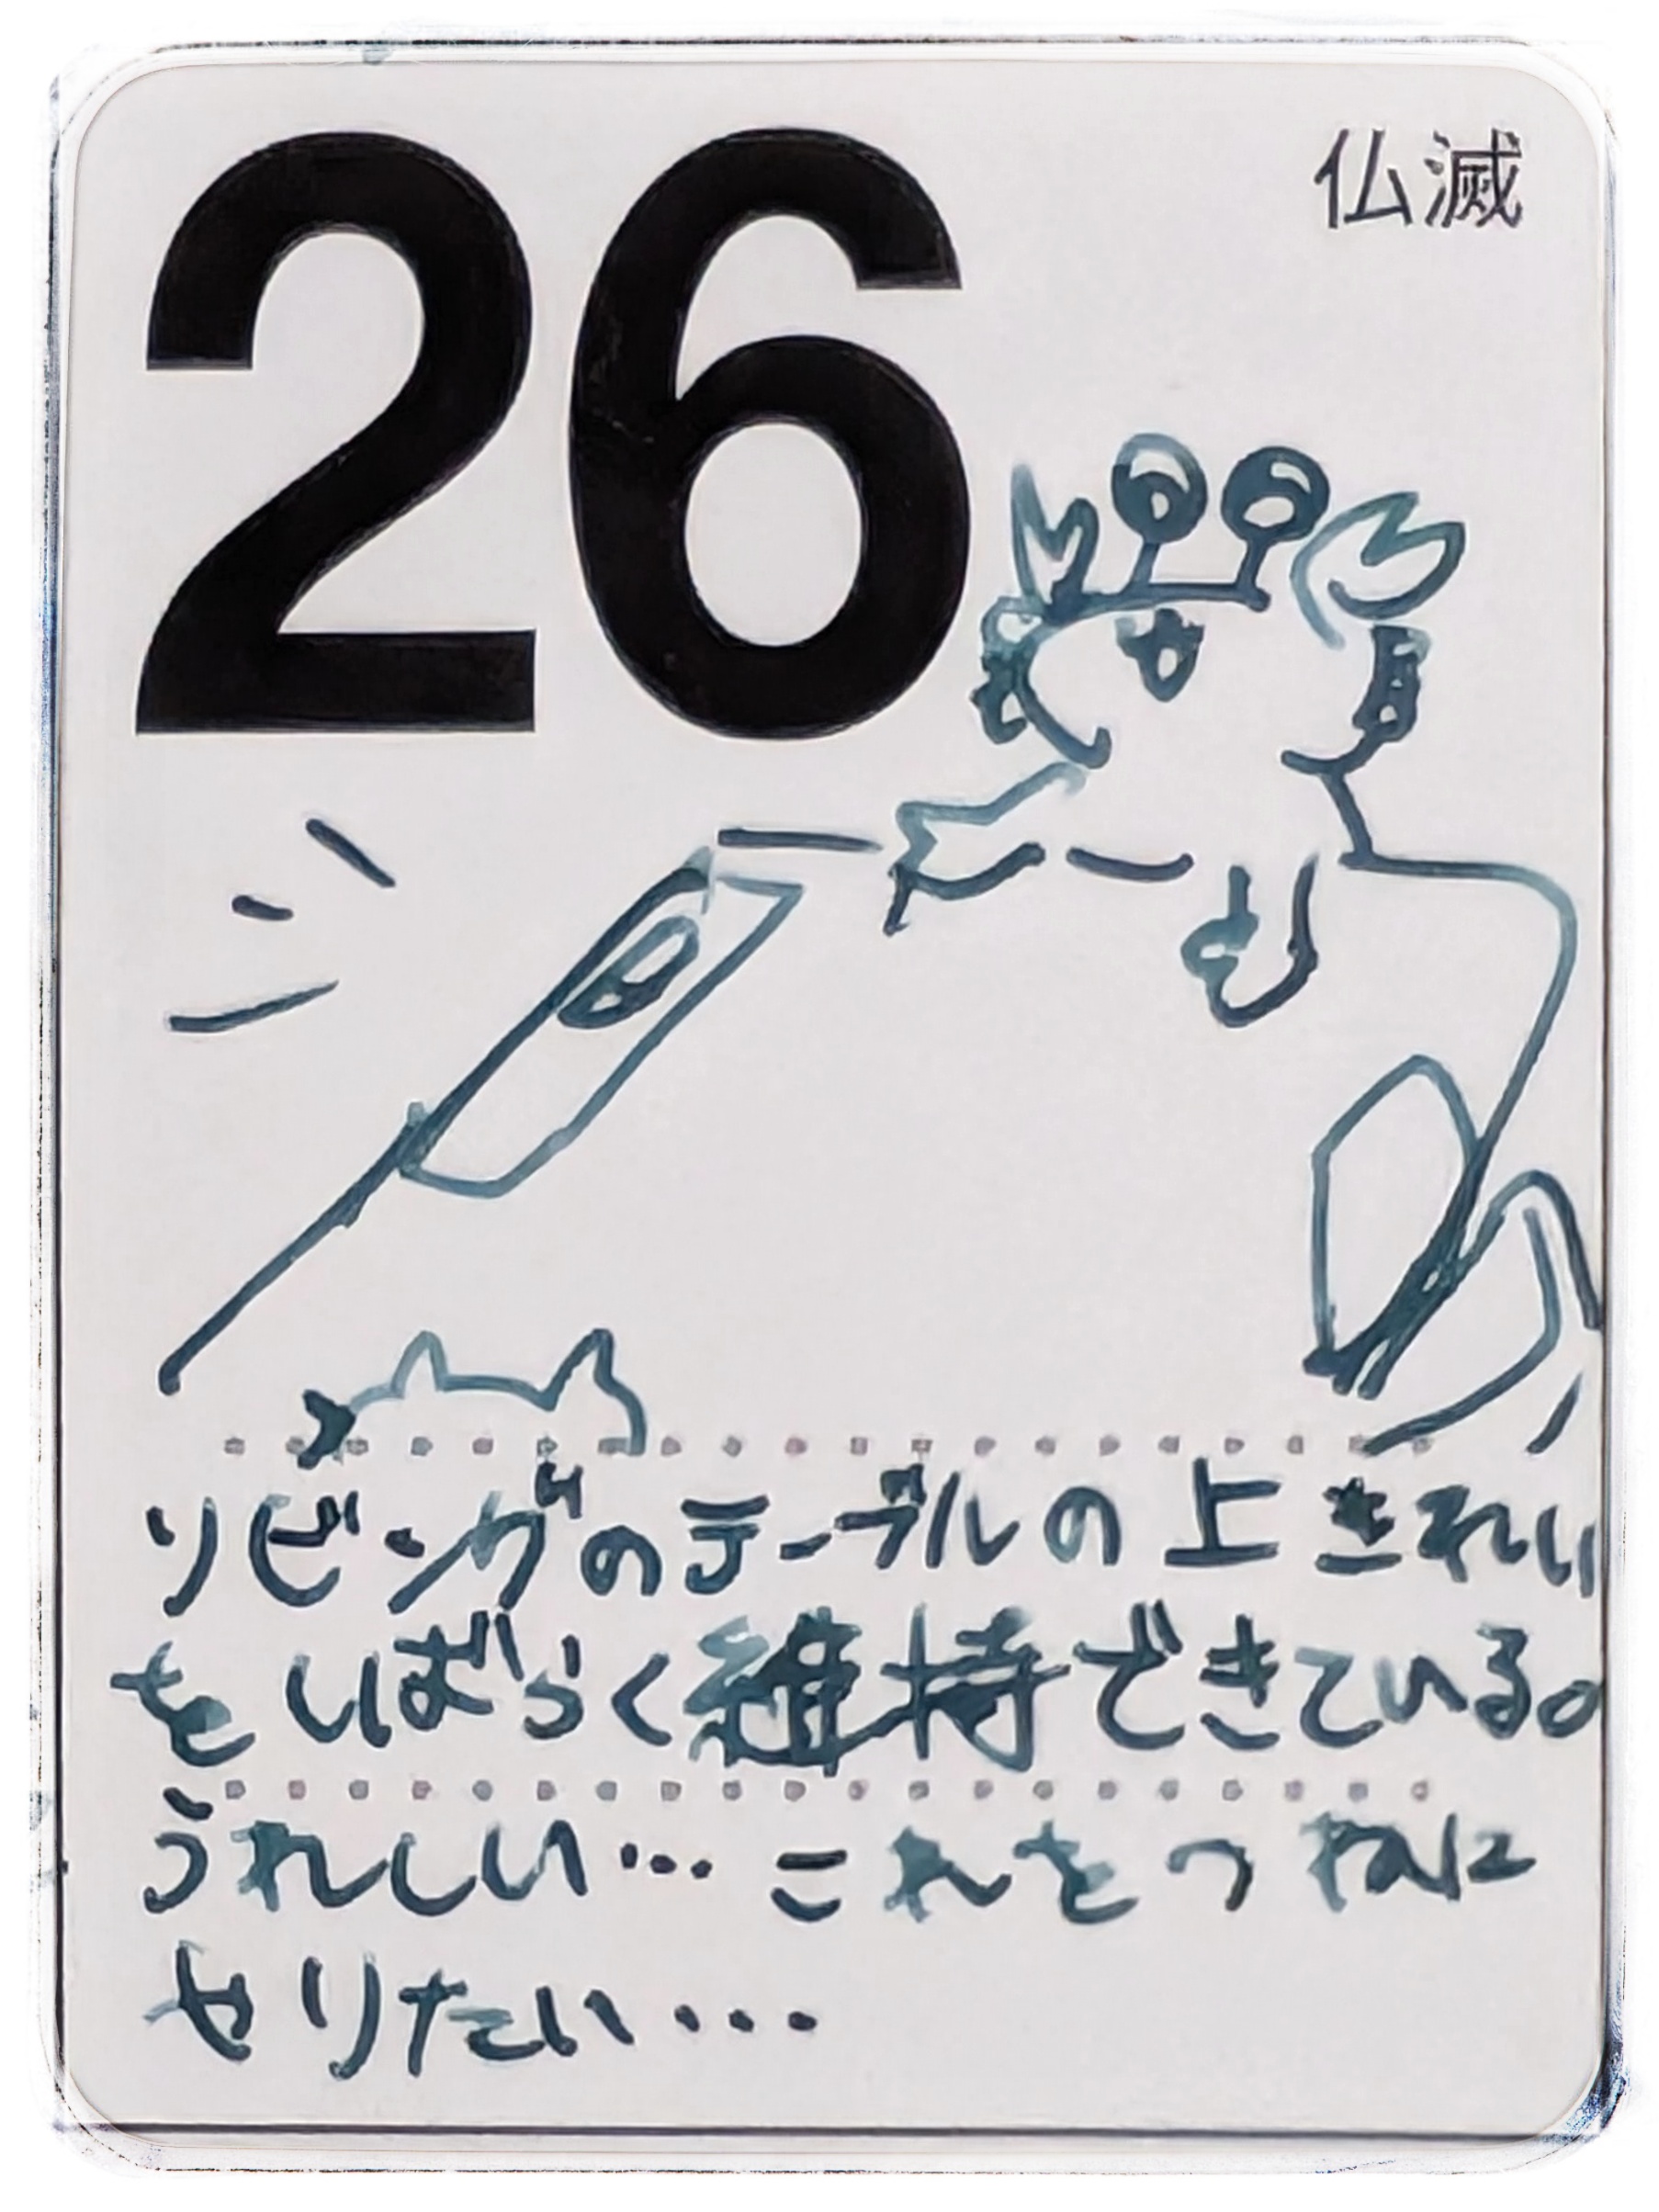 26
仏滅
リビングのテーブルの上きれい
をしばらく維持できている。
うれしい… これをつねに
やりたい…